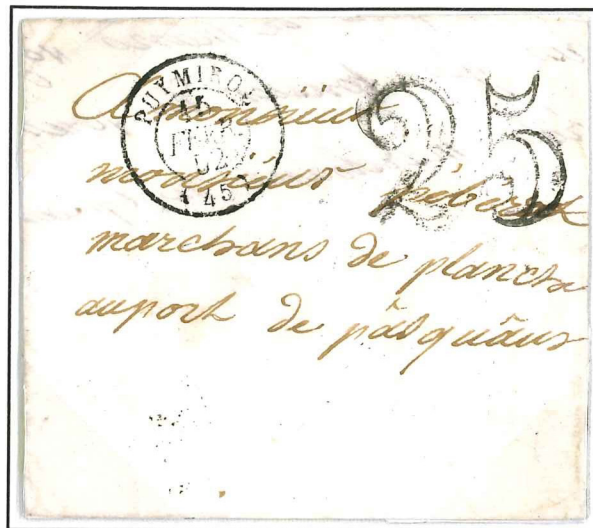 PUYMIROL
15
FEVR.
52
(45)
25
A monsieur
monsieur
marchans de planche
auport de pâsquâus